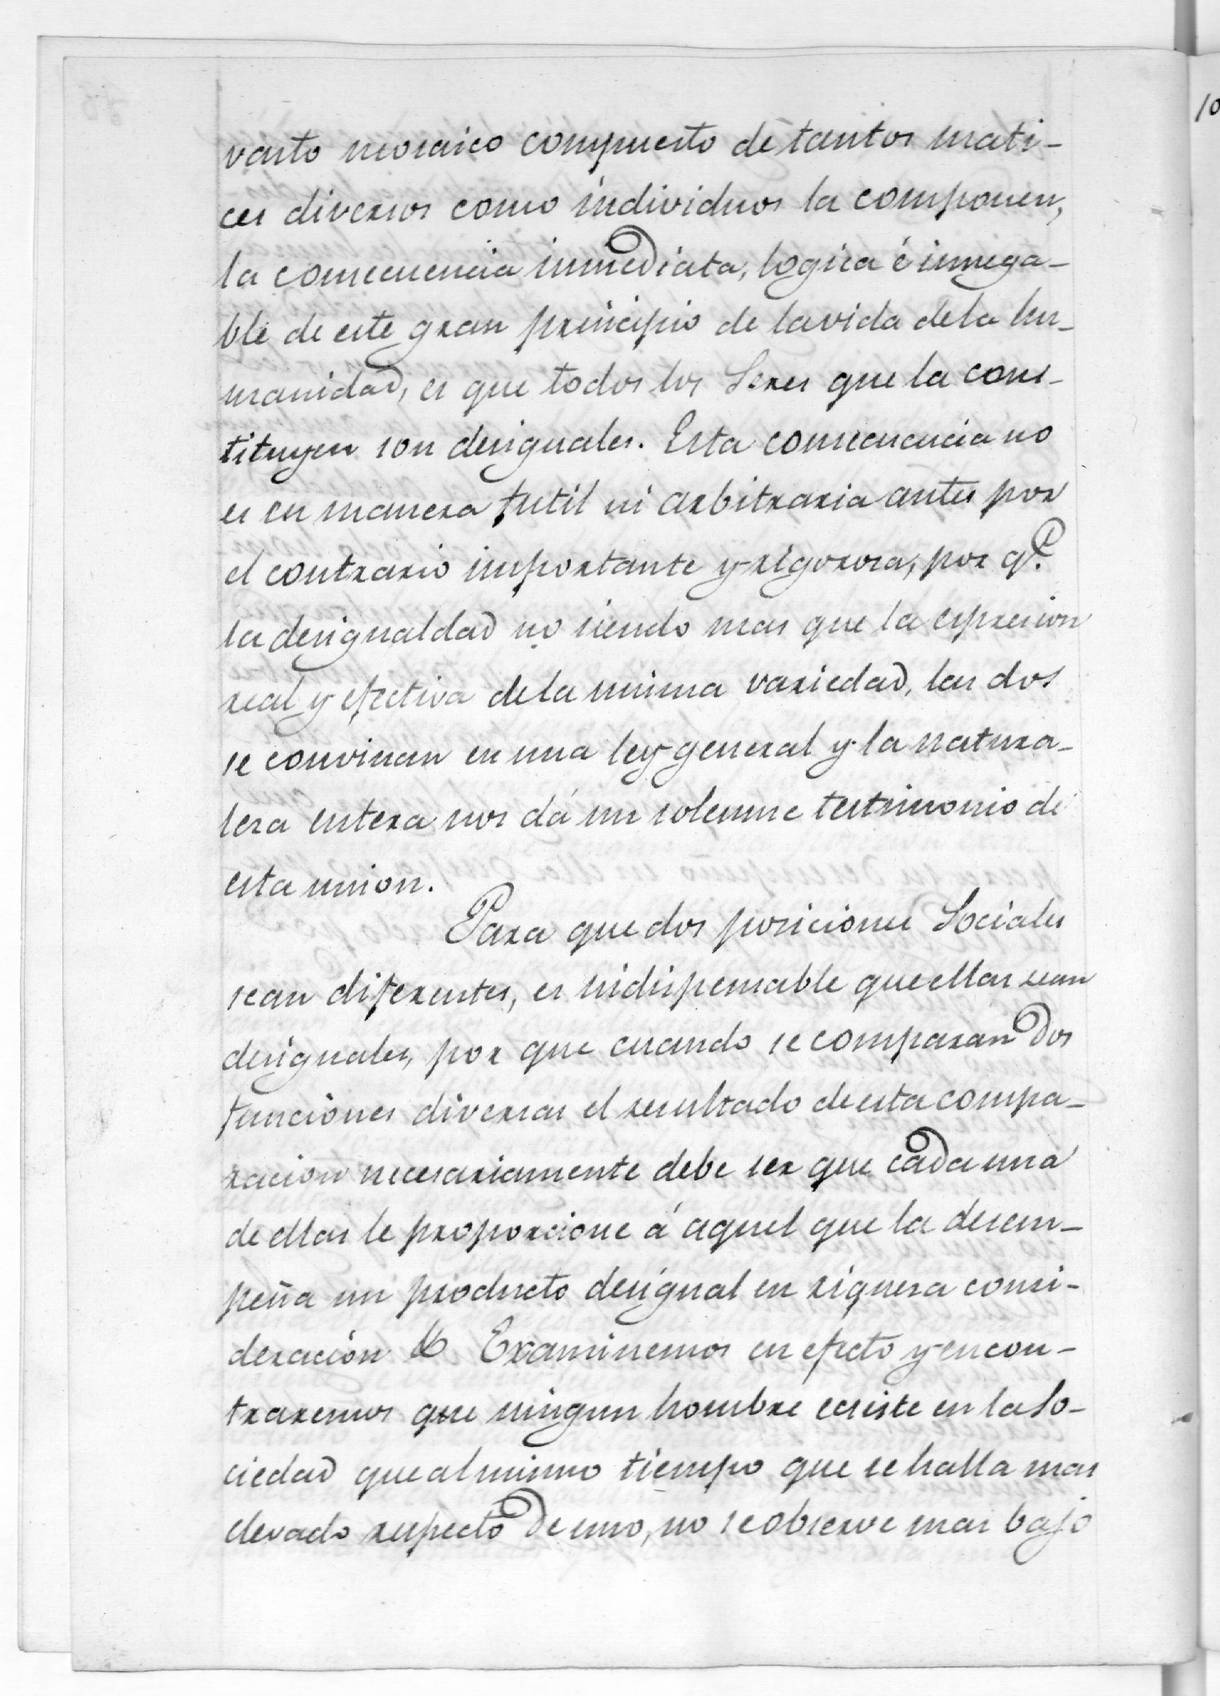 vasto mosaico compuesto de tantos mati-
ces diversos como individuos la componen,
la consecuencia inmediata, logica é innega-
ble de este gran principio de la vida de la hu-
manidad, es que todos los Seres que la cons-
tituyen son desiguales. Esta consecuencia no
es en manera futil ni arbitraria antes por
el contrario importante y rigorosa, por q.e
la desigualdad no siendo mas que la espresion
real y efectiva de la misma variedad, las dos
se convinan en una ley general y la natura-
leza entera nos dá un solemne testimonio de
esta union.
Para que dos posiciones Sociales
sean diferentes, es indispensable que ellas sean
desiguales, por que cuando se comparan dos
funciones diversas el resultado de esta compa-
racion necesariamente debe ser que cada una
de ellas le proporcione á aquel que la desem-
peña un producto desigual en riquesa consi-
deración & Examinemos en efecto y encon-
traremos que ningun hombre ecsiste en la So-
ciedad que al mismo tiempo que se halla mas
elevado respecto de uno, no se observe mas bajo
10